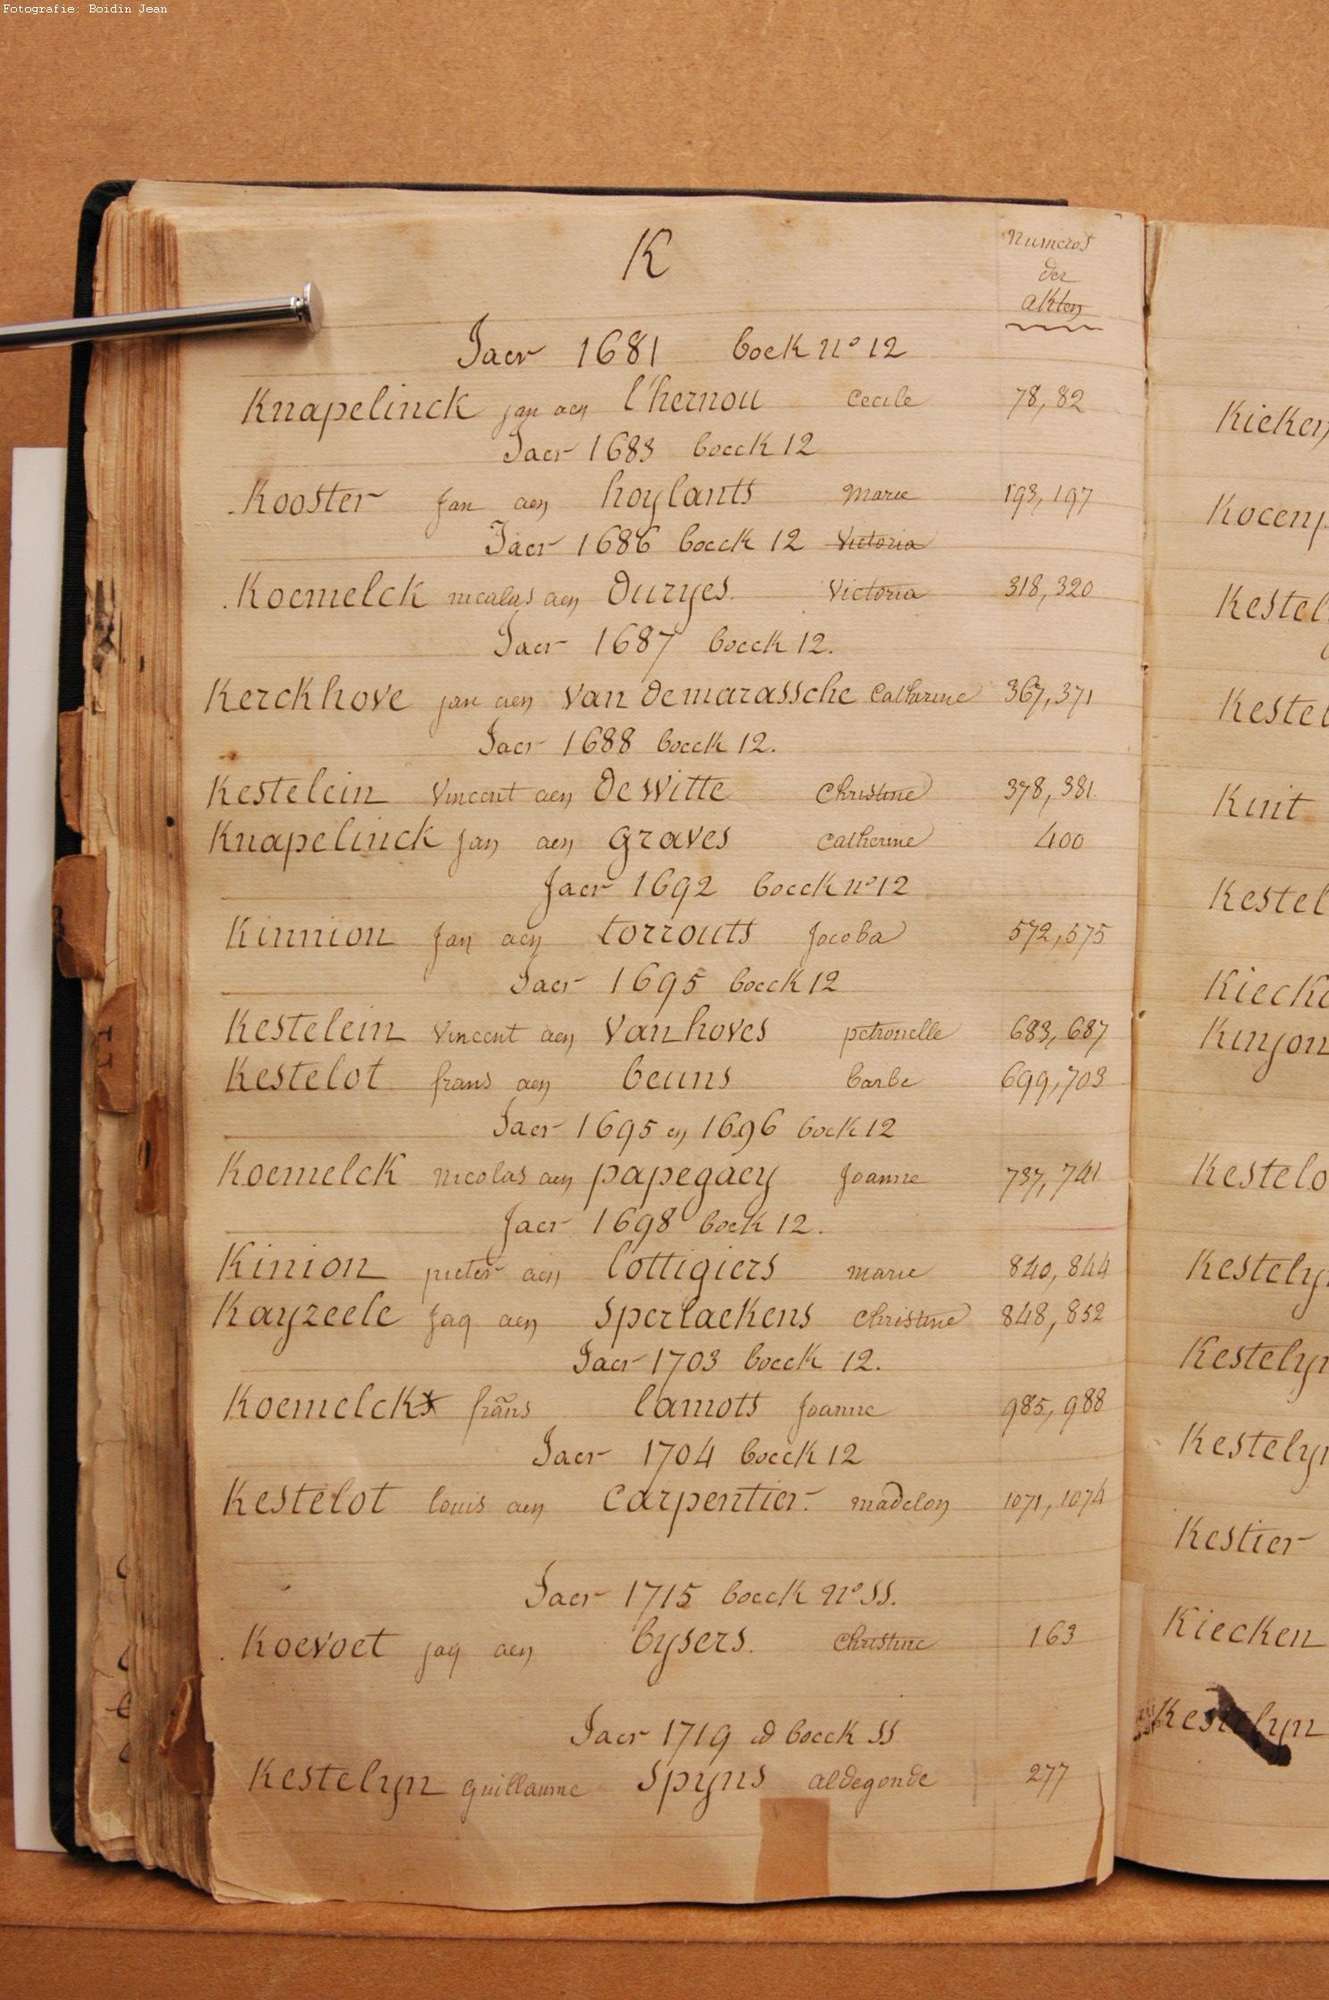 Fotografie: Boidin Jean
K
Numeros
der
akten
Jaer 1681 boek nº 12
Knapelinck jan aen l'hernou Cecile 78, 82
Jaer 1683 boeck 12
Kooster Jan aen hoylants Marie 193, 197
Jaer 1686 boeck 12 Victoria
Koemelck nicalas aen Duryes. Victoria 318, 320
Jaer 1687 boeck 12.
Kerckhove jan aen van demarassche Catharine 367, 371
Jaer 1688 boeck 12.
Kestelein Vincent aen De Witte Christine 378, 381
Knapelinck Jan aen graves Catherine 400
Jaer 1692 boeck nº 12
Kinnion Jan aen torrouts Jacoba 572, 575
Jaer 1695 boeck 12
Kestelein Vincent aen Van hoves petronelle 683, 687
Kestelot frans aen beuns barbe 699, 703
Jaer 1695 en 1696 boek 12
Koemelck nicolas aen papegaey Joanne 737, 741
Jaer 1698 boek 12.
Kinion pieter aen lottigiers marie 840, 844
Kayzeele Jaq aen Sperlaekens Christine 848, 852
Jaer 1703 boeck 12.
Koemelck frans lamots Joanne 985, 988
Jaer 1704 boeck 12
Kestelot louis aen Carpentier. madelon 1071, 1074
Jaer 1715 boeck Nº SS.
Koevoet jaq aen bysers. Christine 163
Jaer 1719 d boeck SS
Kestelyn guillaume Spyns aldegonde 277
Kieken
Kestel
Kestel
Kuit
Kestel
Kiecke
Kinjon
Kestelo
Kestely
Kestelyn
Kestelyn
Kestier
Kiecken
Kestelyn